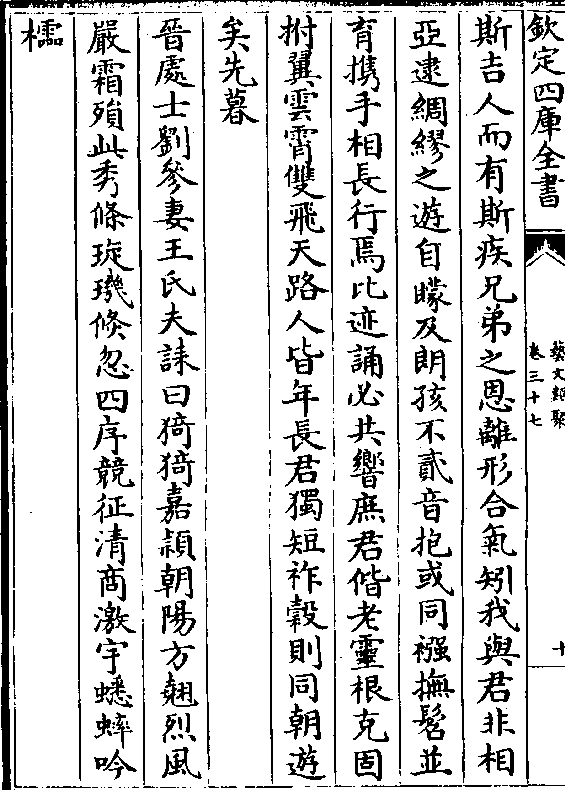 欽定四庫全書
藝文類聚
卷三十七
十
斯吉人而有斯疾兄弟之恩離形合氣矧我與君非相
亞逮綢繆之遊自曚及朗孩不貳音抱或同襁撫髫並
育携手相長行焉比迹誦必共響庶君偕老靈根克固
拊翼雲霄雙飛天路人皆年長君獨短祚糓則同朝遊
矣先暮
晉處士劉參妻王氏夫誄曰猗猗嘉頴朝陽方翹烈風
嚴霜殞此秀條琁璣倐忽四序競征清商激宇蟋蟀吟
櫺